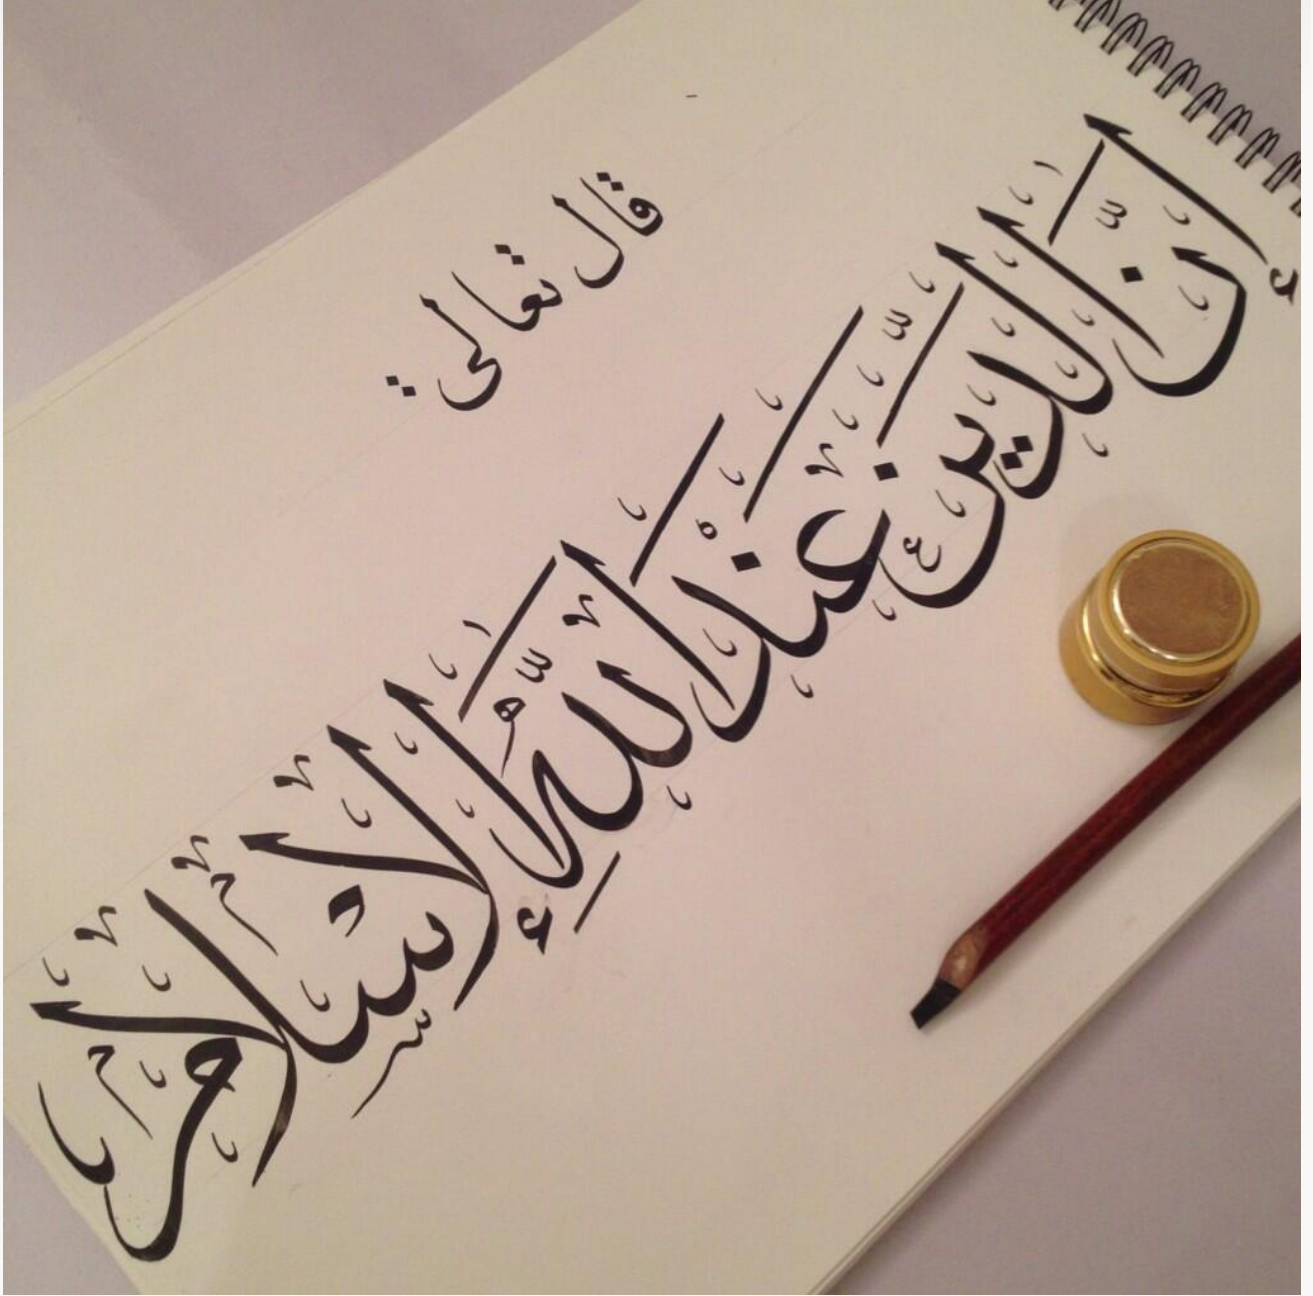 قال تعالى
إنَّ الدّين عند اللّه الإسلام